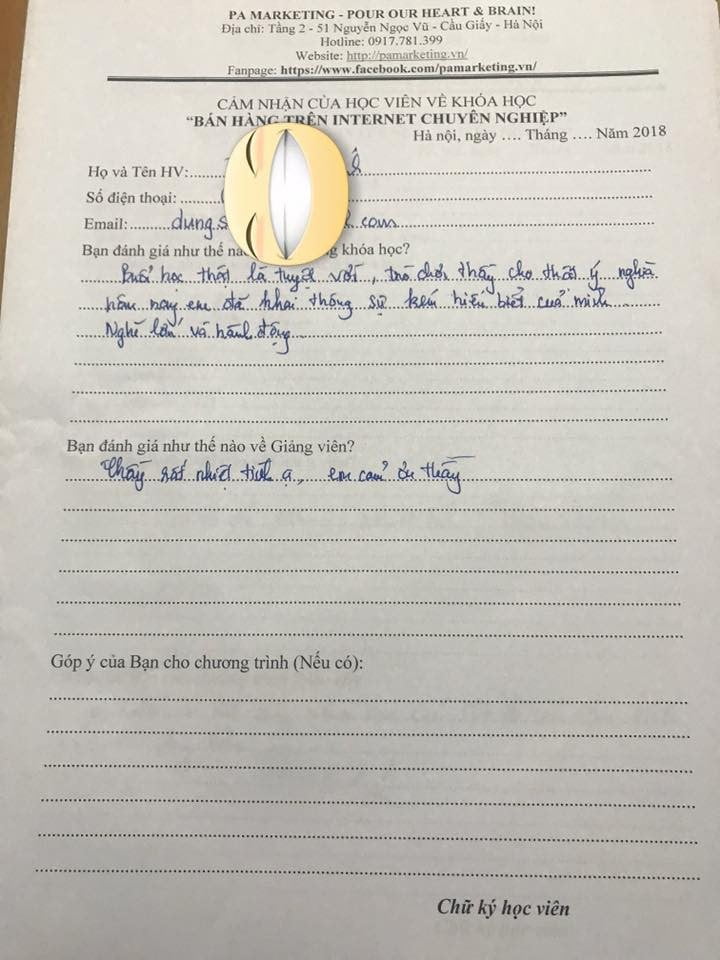 PA MARKETING - POUR OUR HEART & BRAIN!
Địa chỉ: Tầng 2 - 51 Nguyễn Ngọc Vũ - Cầu Giấy - Hà Nội
Hotline: 0917.781.399
Website: http://pamarketing.vn/
Fanpage: https://www.facebook.com/pamarketing.vn/
CẢM NHẬN CỦA HỌC VIÊN VỀ KHÓA HỌC
“BÁN HÀNG TRÊN INTERNET CHUYÊN NGHIỆP”
Hà nội, ngày .... Tháng .... Năm 2018
Họ và Tên HV:
Số điện thoại:
Email: dung com
Bạn đánh giá như thế khóa học?
Buổi học thật là tuyệt vời, trò chơi thầy cho thật ý nghĩa
hôm nay em đã khai thông sự kém hiểu biết của mình
Nghĩ lớn và hành động
Bạn đánh giá như thế nào về Giảng viên?
Thầy rất nhiệt tình ạ, em cảm ơn thầy
Góp ý của Bạn cho chương trình (Nếu có):
Chữ ký học viên